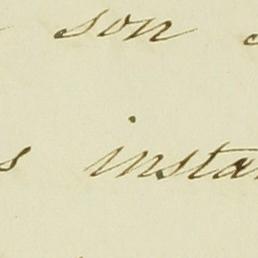 son
s insta